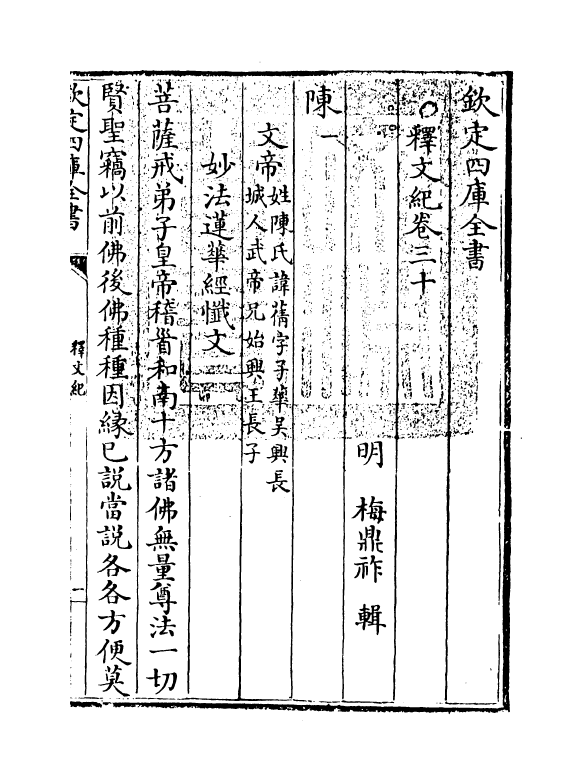 欽定四庫全書
釋文紀卷三十
明 梅鼎祚 輯
陳一
文帝姓陳氏諱蒨字子華吳興長
城人武帝兄始興王長子
妙法蓮華經懺文
菩薩戒弟子皇帝稽首和南十方諸佛無量尊法一切
賢聖竊以前佛後佛種種因縁已說當說各各方便莫
欽定四庫全書
釋文紀
一